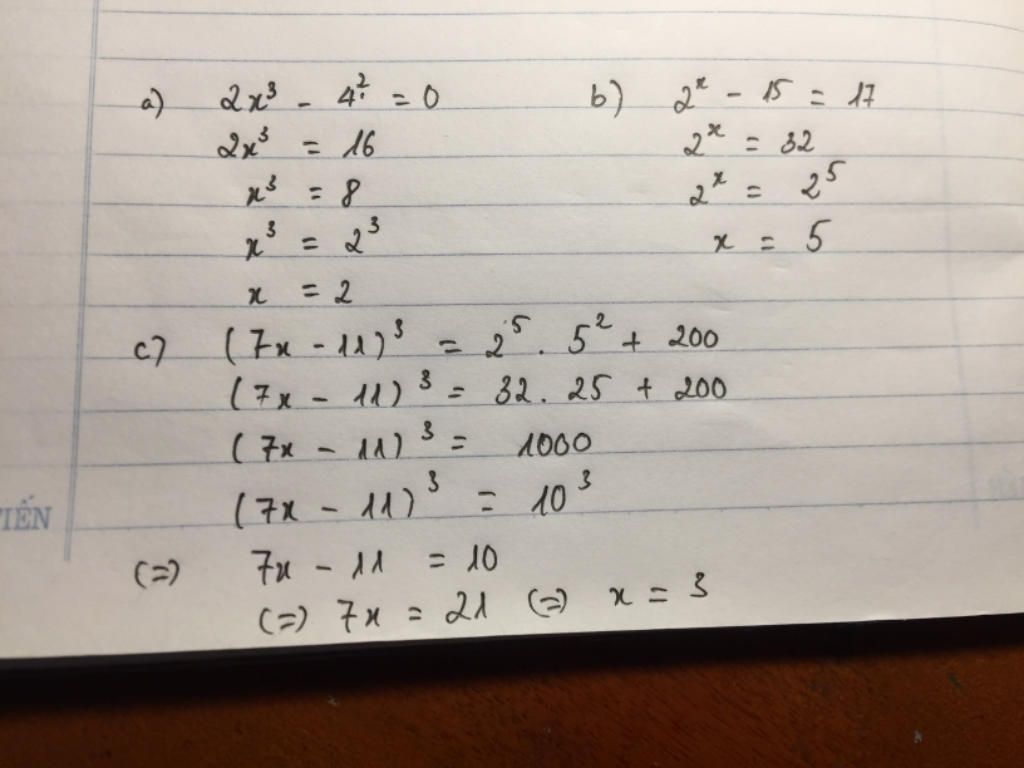 a) 2x³ - 4² = 0
2x³ = 16
x³ = 8
x³ = 2³
x = 2
b) 2ˣ - 15 = 17
2ˣ = 32
2ˣ = 2⁵
x = 5
c) (7x - 11)³ = 2⁵ . 5² + 200
(7x - 11)³ = 32 . 25 + 200
(7x - 11)³ = 1000
(7x - 11)³ = 10³
(=) 7x - 11 = 10
(=) 7x = 21 (=) x = 3
TIẾN